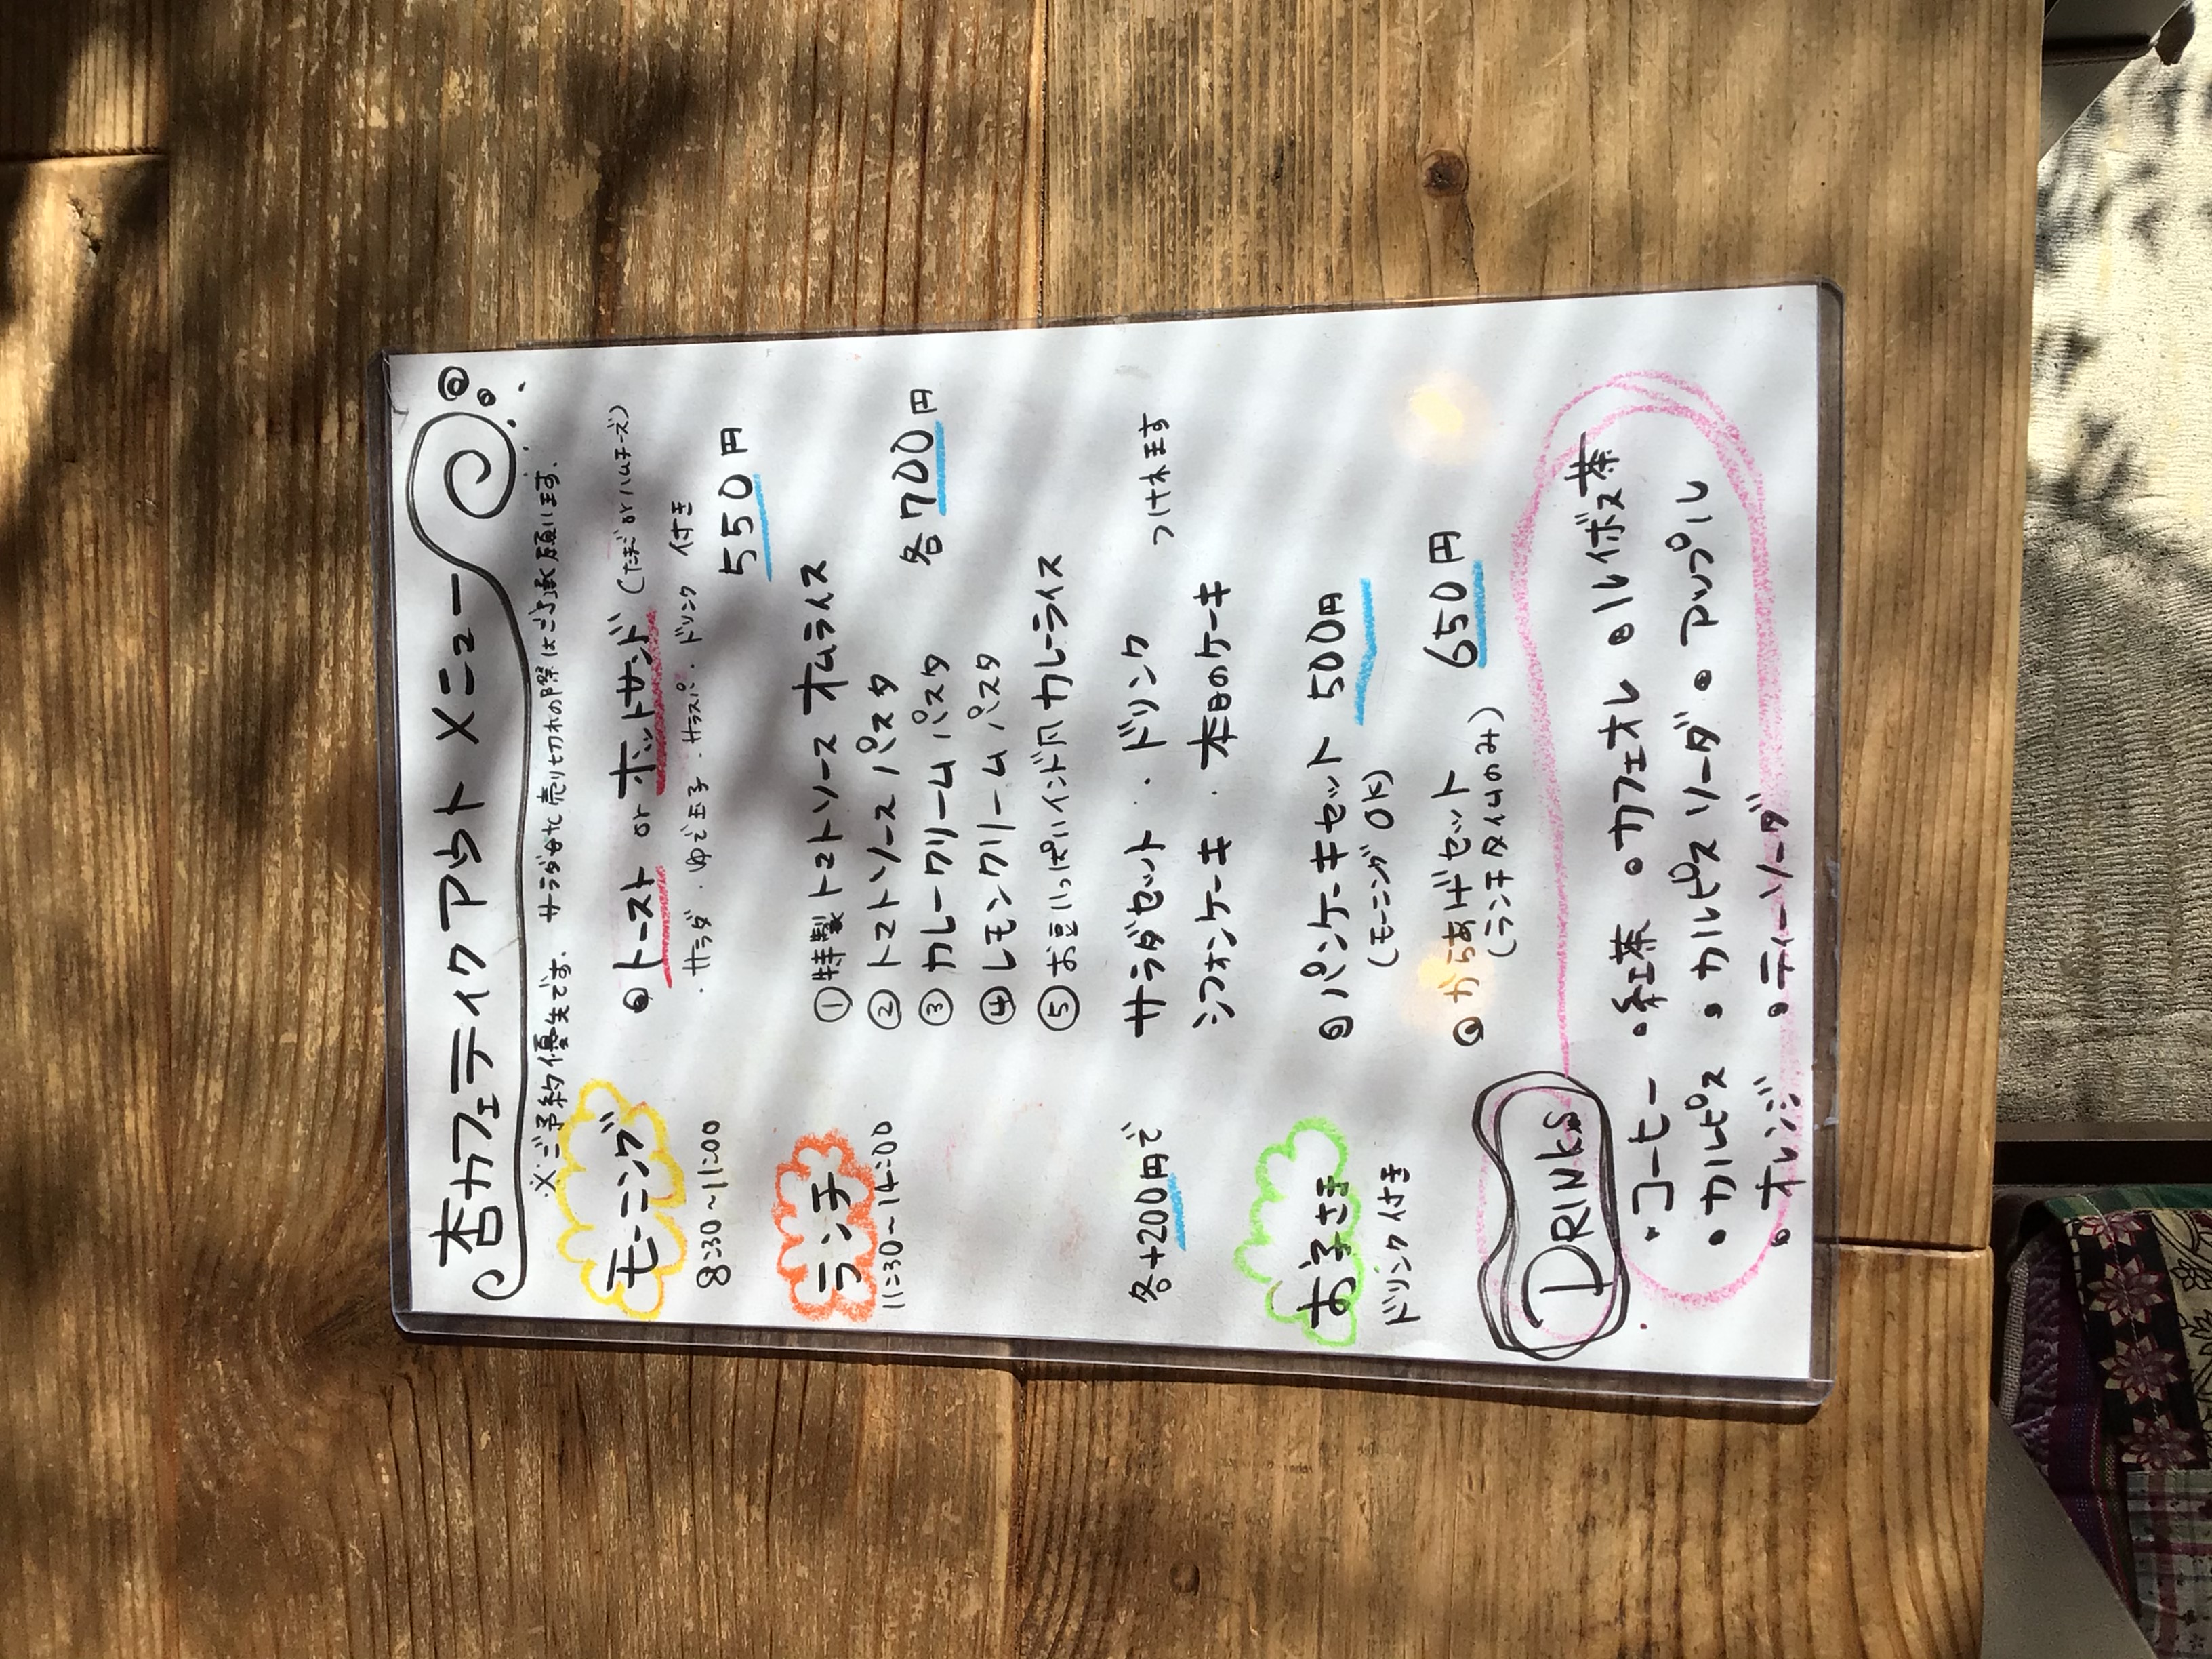 杏カフェテイクアウトメニュー
※ご予約優先です。サラダ含む売り切れの際はご了承願います。
モーニング
8:30〜11:00
◎トースト or ホットサンド (たまご or ハムチーズ)
・サラダ・ゆで玉子・サラスパ・ドリンク 付き
550円
ランチ
11:30〜14:00
①特製トマトソース オムライス
②トマトソースパスタ
③カレークリームパスタ
各700円
④レモンクリームパスタ
⑤お豆いっぱいインド風カレーライス
各+200円で
サラダセット・・ドリンク
つけれます
シフォンケーキ・本日のケーキ
お子さま
ドリンク付き
◎パンケーキセット 500円
(モーニングOK)
◎からあげセット 650円
(ランチタイムのみ)
DRINKS
・コーヒー ・紅茶 ・カフェオレ ・ルイボス茶
・カルピス ・カルピスソーダ ・アップル
・オレンジ ・ティーソーダ